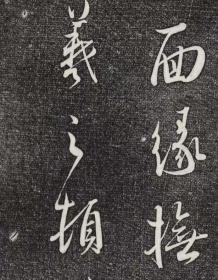 面緣撫
羲之頓